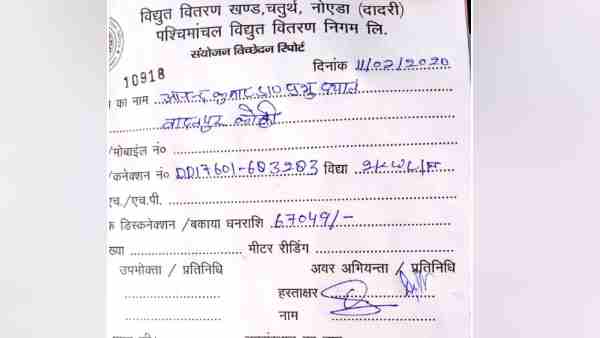 विद्युत वितरण खण्ड,चतुर्थ, नोएडा (दादरी)
पश्चिमांचल विद्युत वितरण निगम लि.
संयोजन विच्छेदन रिपोर्ट
10918 दिनांक 11/02/2020
का नाम आनन्द कुमार S/O प्रभु दयाल
/मोबाईल नं०
/कनेक्शन नं० DD17601-683283 विद्या 2KW L/F
एच./एच.पी.
डिस्कनेक्शन /बकाया धनराशि 67049/-
ख्या मीटर रीडिंग
उपभोक्ता / प्रतिनिधि अवर अभियन्ता / प्रतिनिधि
हस्ताक्षर
नाम